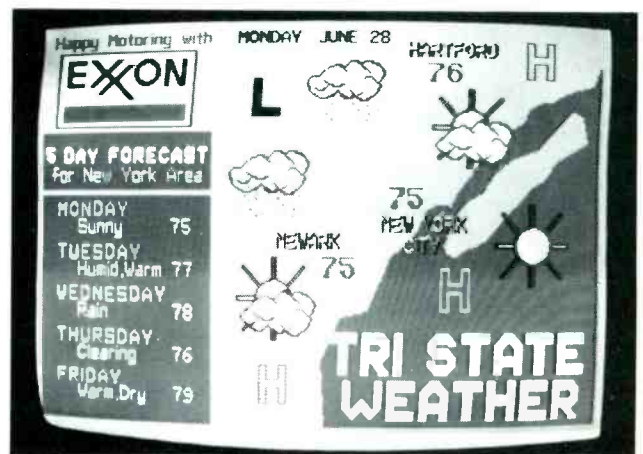 Happy Motoring with
EXXON
5 DAY FORECAST
for New York Area
MONDAY
Sunny 75
TUESDAY
Humid,Warm 77
WEDNESDAY
Rain 78
THURSDAY
Clearing 76
FRIDAY
Warm,Dry 79
MONDAY JUNE 28
HARTFORD
76
H
L
75
NEW YORK
CITY
NEWARK
75
H
H
TRI STATE
WEATHER